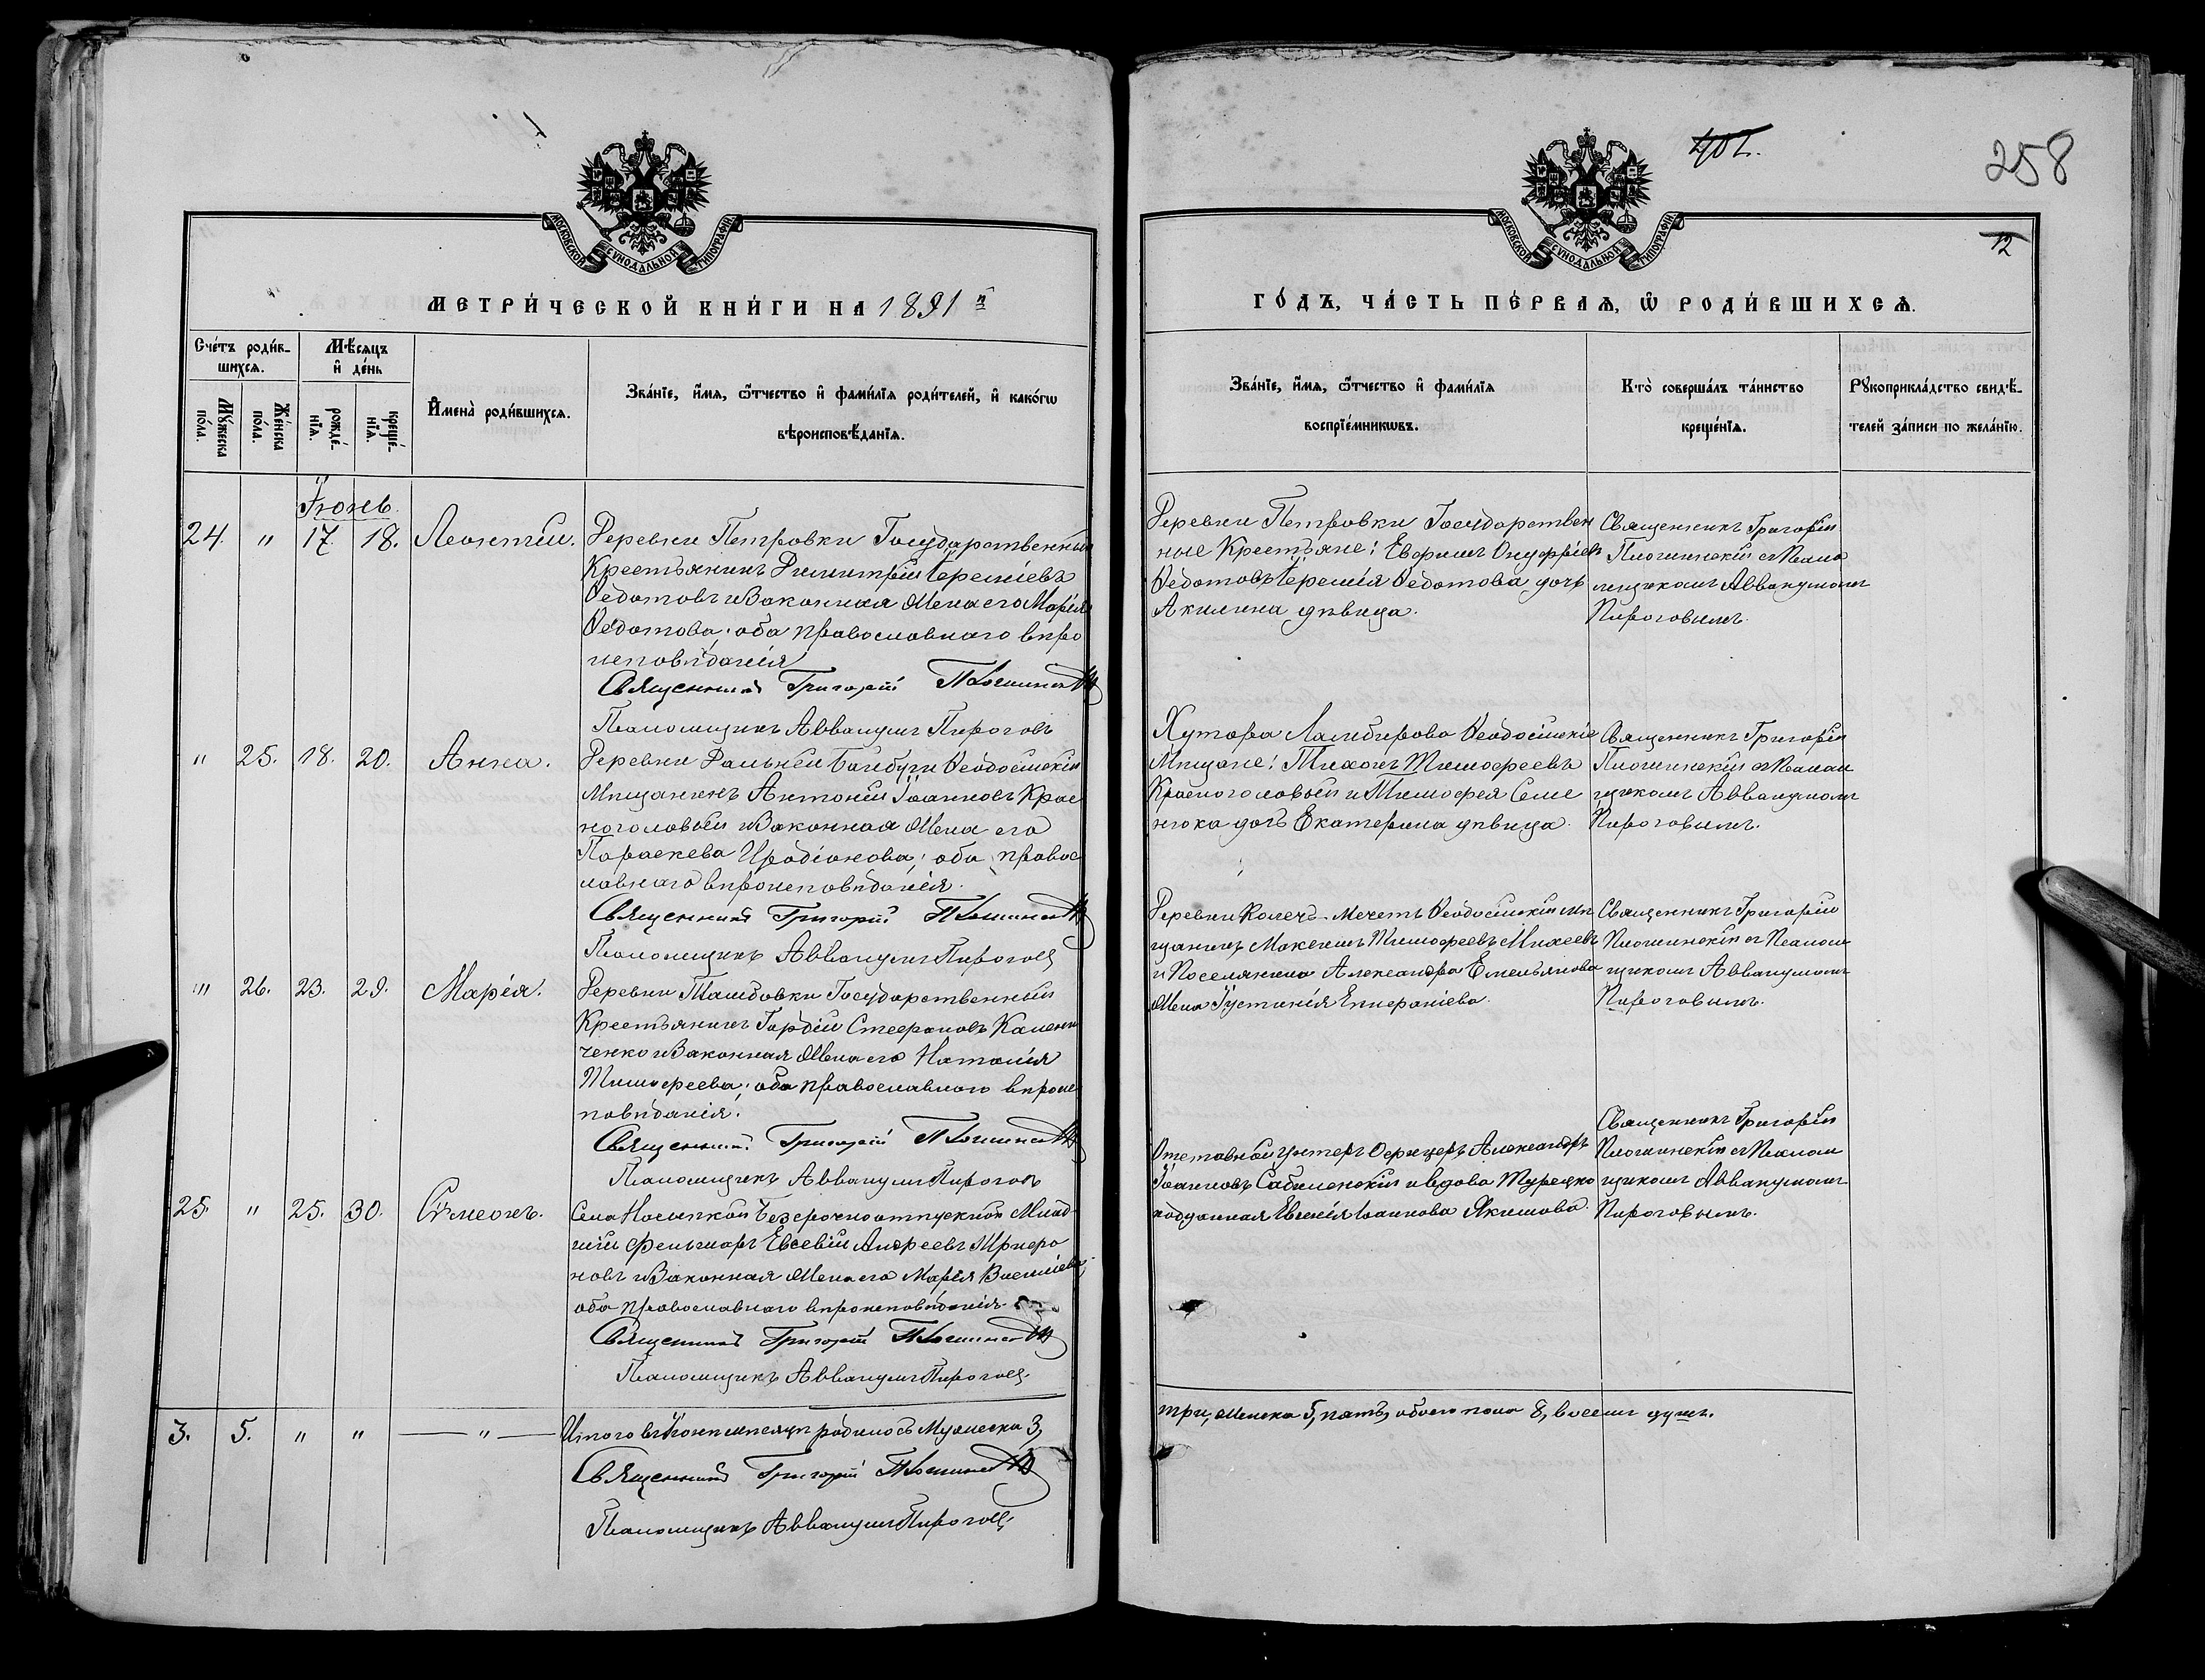 402.
258
12
МОСКОВСКОЙ СѴНОДАЛЬНОЙ ТИПОГРАФІИ
МЕТРИ́ЧЕСКОЙ КНИ́ГИ НА 1891 й
Сче́тъ роди́в-
шихсѧ.
Мѣ́сѧцъ
и҆ де́нь
Мꙋ́жеска
по́ла.
Же́нска
по́ла.
рожде́-
нїѧ.
креще́-
нїѧ.
И҆мена̀ роди́вшихсѧ.
Зва́нїе, и҆́мѧ, ѻ҆́тчество и҆ фами́лїѧ роди́телей, и҆ како́гѡ
вѣроисповѣ́данїѧ.
Іюнь.
24. " 17 18. Леонтій. Деревни Петровки Государственный
Крестьянинъ Димитрій Іереміевъ
Ѳедотовъ и Законная Жена его Марія
Ѳедотова; оба православнаго вѣро
исповѣданія
Священникъ Григорій
Псаломщикъ Аввакумъ Пироговъ
" 25. 18. 20. Анна. Деревни Дальней Байбуги Ѳеодосійскій
Мѣщанинъ Антоній Іоанновъ Крас
ноголовый и Законная Жена его
Параскева Иродіонова; оба правос
лавнаго вѣроисповѣданія.
Священникъ Григорій
Псаломщикъ Аввакумъ Пироговъ
" 26. 23. 29. Марія. Деревни Тамбовки Государственный
Крестьянинъ Гордій Стефановъ
ченко и Законная Жена его Наталія
Тимофеева; оба православнаго вѣроис
повѣданія.
Священникъ Григорій
Псаломщикъ Аввакумъ Пироговъ
25. " 25. 30. Сѵмеонъ. Села Насыпкой Безсрочноотпускной Млад
шій фельшаръ Евсевій Андреевъ
новъ и Законная Жена его Марія Василіева;
оба православнаго вѣроисповѣданія.
Священникъ Григорій
Псаломщикъ Аввакумъ Пироговъ
3. 5. " " — " — Итого въ Іюнѣ мѣсяцѣ родилось Мужеска 3,
Священникъ Григорій
Псаломщикъ Аввакумъ Пироговъ
МОСКОВСКОЙ СѴНОДАЛЬНОЙ ТИПОГРАФІИ
ГО́ДЪ, ЧА́СТЬ ПЕ́РВАѦ, Ѽ РОДИ́ВШИХСѦ.
Зва́нїе, и҆́мѧ, ѻ҆́тчество и҆ фами́лїѧ
воспрїе́мникѡвъ.
Кто̀ соверша́лъ та́инство
креще́нїѧ.
Рꙋкоприкла́дство свидѣ́-
телей за́писи по жела́нїю.
Деревни Петровки Государствен
ные Крестьяне: Евфимъ Онуфріевъ
Ѳедотовъ Іеремія Ѳедотова дочь
Акилина дѣвица.
Священникъ Григорій
съ Псало
мщикомъ Аввакумомъ
Пироговымъ.
Хутора Ѳеодосійскіе
Мѣщане: Тихонъ Тимофеевъ
Красноголовый и Тимофея Семе
нюка дочь Екатерина дѣвица.
Священникъ Григорій
съ Псалом
щикомъ Аввакумомъ
Пироговымъ.
Деревни Колечъ-Мечеть Ѳеодосійскій мѣ
щанинъ Максимъ Тимофеевъ Михеевъ
и Поселянина Александра Емельянова
Жена Іустинія Епифаніева.
Священникъ Григорій
съ Псалом
щикомъ Аввакумомъ
Пироговымъ.
Отставной Унтеръ Офицеръ Александръ
Іоанновъ и вдова Турецко
подданная Евгенія Іоаннова Якимова.
Священникъ Григорій
съ Псалом
щикомъ Аввакумомъ
Пироговымъ.
три, Женска 5, пять, обоего пола 8, восемь душъ.